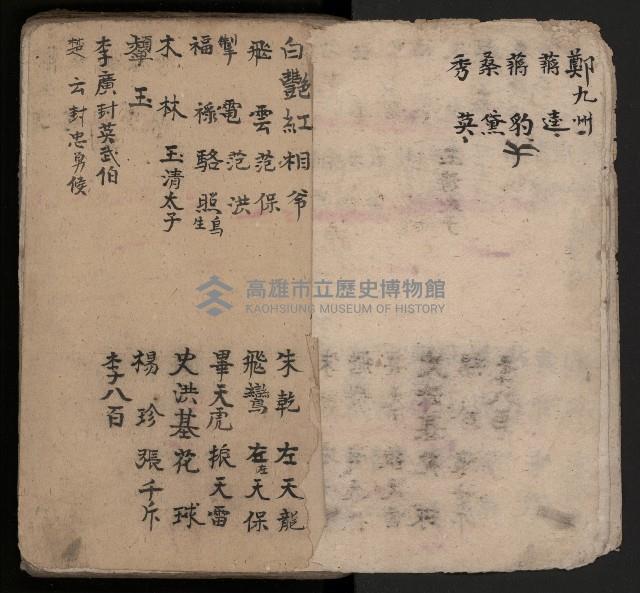 鄭九州
蔣達
蔣豹
桑黛
秀英
白艷紅 相爷
飛雲 范保
掣電 范洪
福祿 駱照
鳥生
木林 玉清太子
玉
李廣封英武伯
楚云封忠勇候
朱乾 左天龍
飛鸞 右天保
左
畢天虎 振天雷
史洪基 花球
楊珍 張千斤
李八百
高雄市立歷史博物館
KAOHSIUNG MUSEUM OF HISTORY